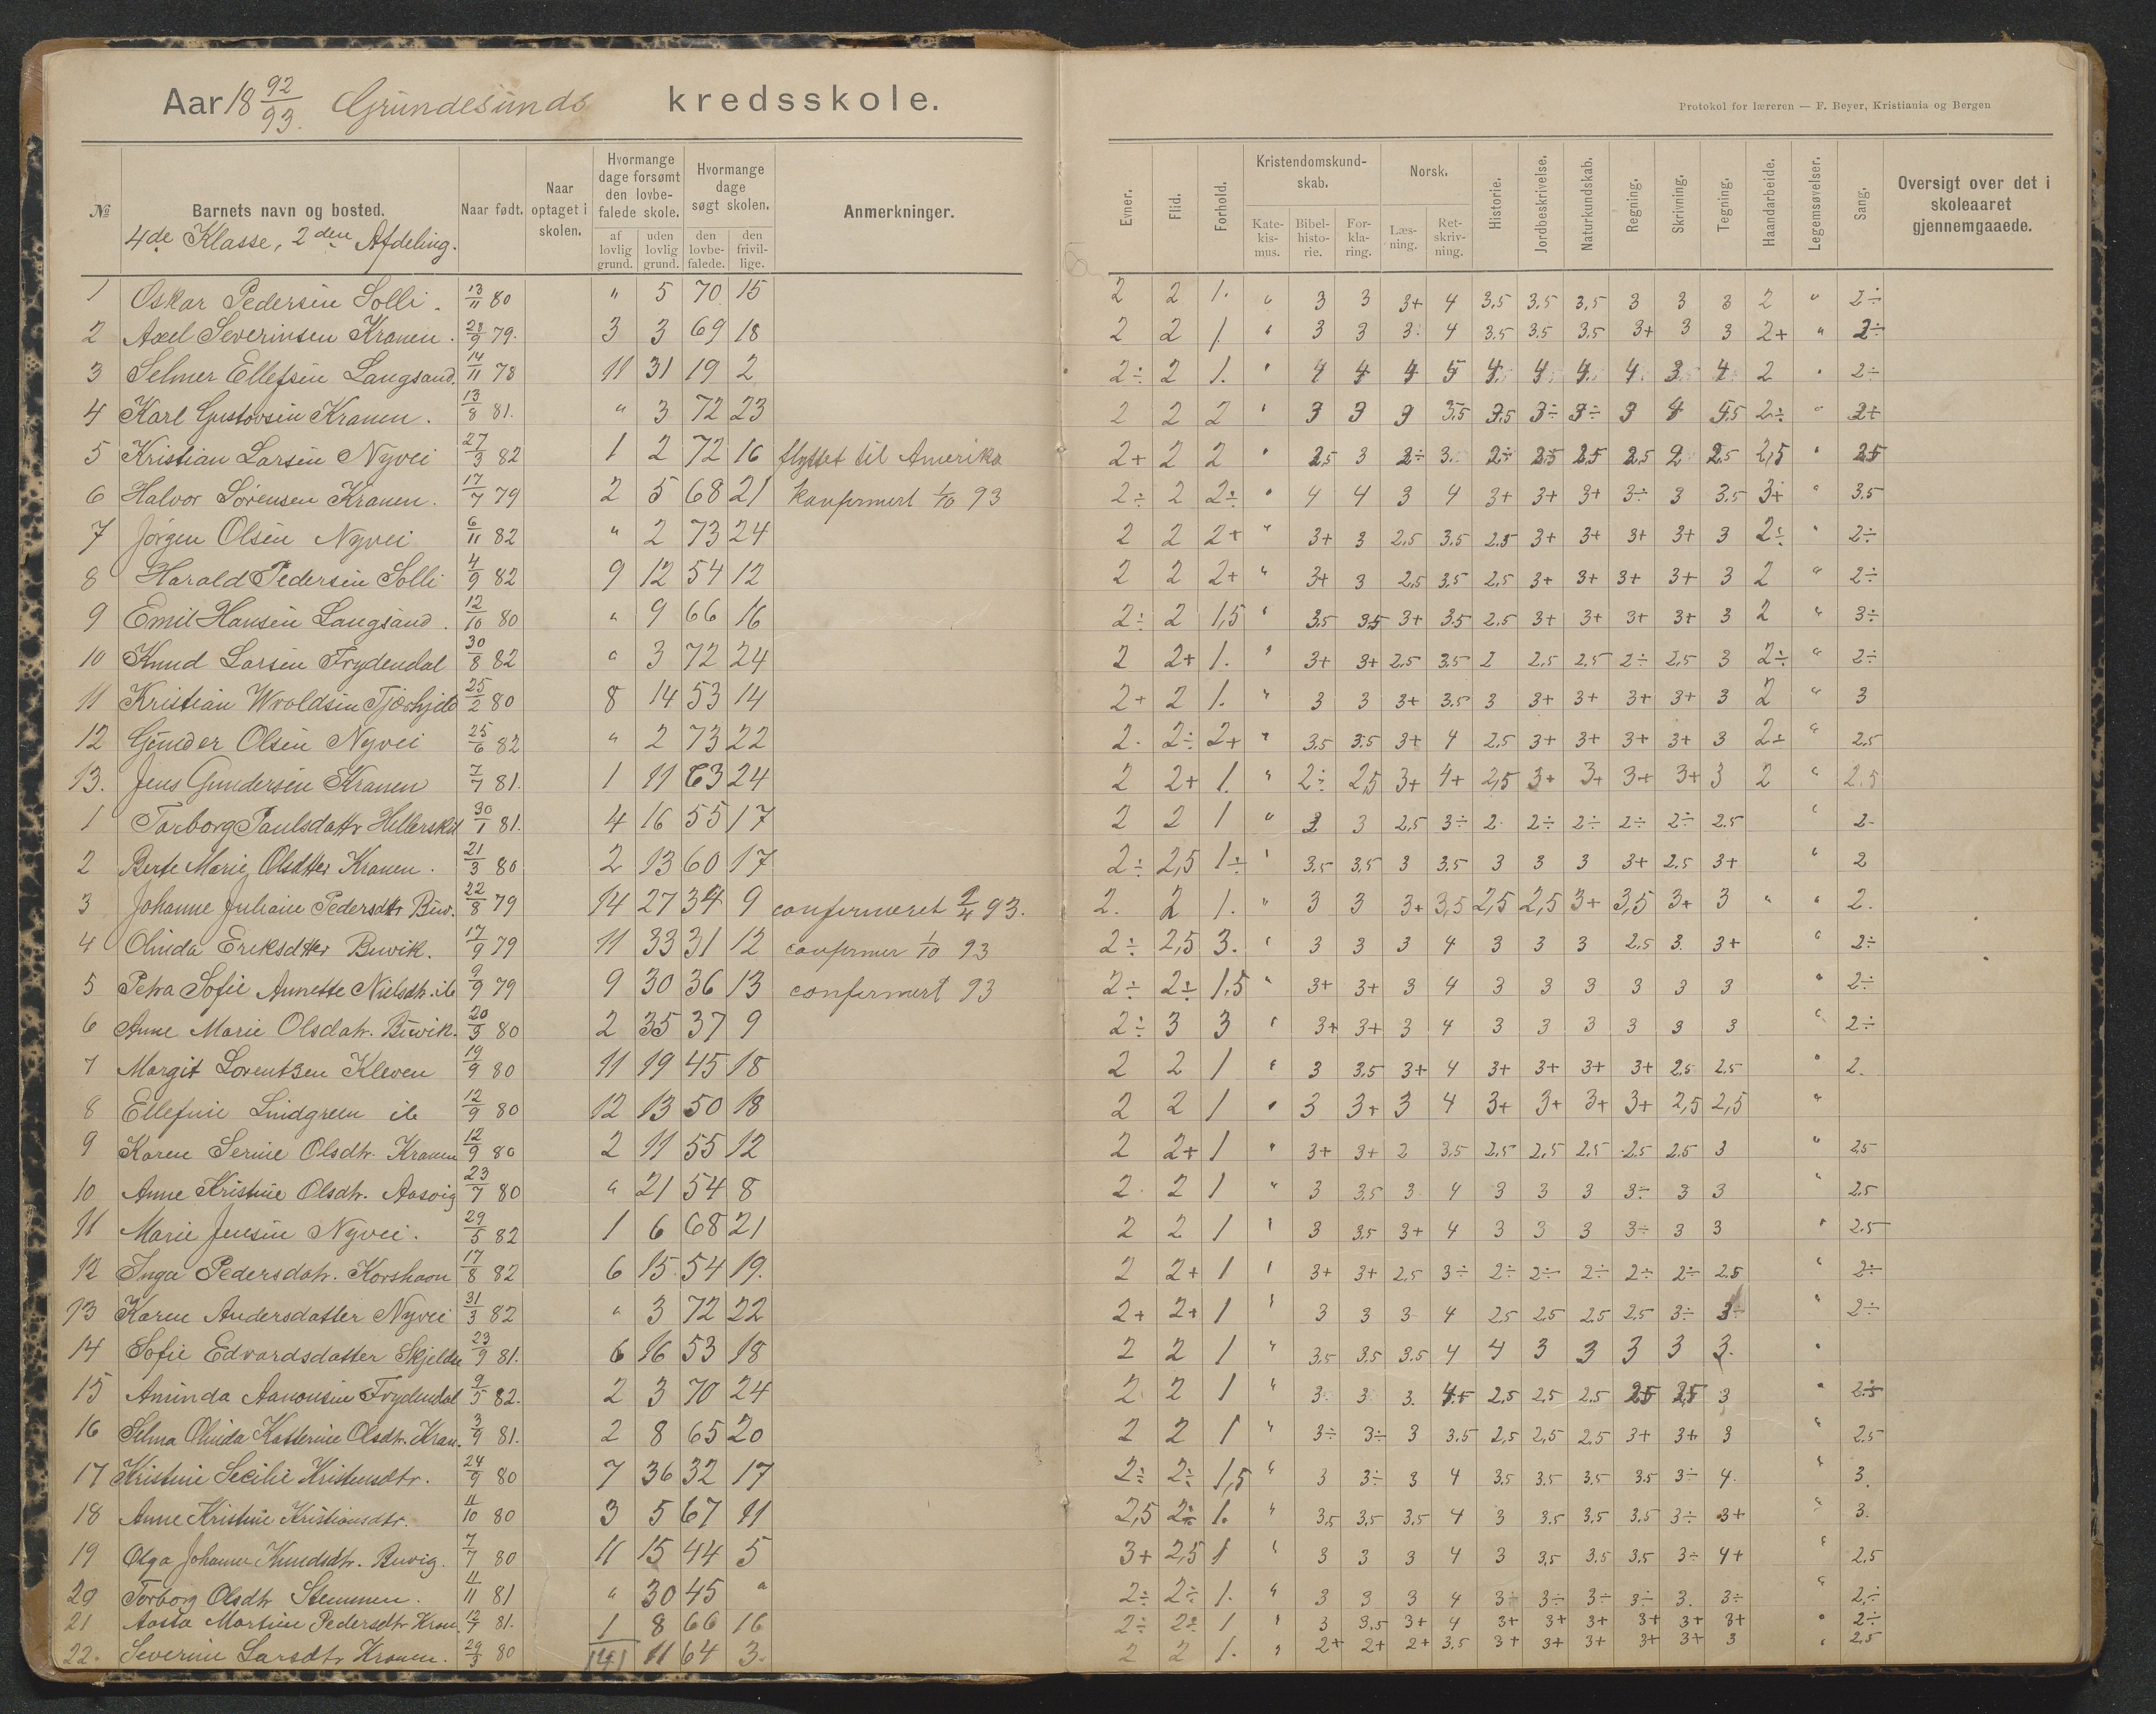 Aar 18 92/93. Grundesunds kredsskole.
Protokol for læreren — F. Beyer, Kristiania og Bergen
№ Barnets navn og bosted. Naar født. Naar optaget i skolen. Hvormange dage forsømt den lovbefalede skole. af lovlig grund. uden lovlig grund. Hvormange dage søgt skolen. den lovbefalede. den frivillige. Anmerkninger. Evner. Flid. Forhold. Kristendomskundskab. Katekismus. Bibelhistorie. Forklaring. Norsk. Læsning. Retskrivning. Historie. Jordbeskrivelse. Naturkundskab. Regning. Skrivning. Tegning. Haandarbeide. Legemsøvelser. Sang. Oversigt over det i skoleaaret gjennemgaaede.
4de Klasse, 2den Afdeling.
1 Oskar Pedersen Solli. 13/11 80 " 5 70 15 2 2 1. " 3 3 3+ 4 3,5 3,5 3,5 3 3 3 2 " 2÷
2 Axel Severinsen Kranen. 28/9 79. 3 3 69 18 2 2 1. " 3 3 3. 4 3,5 3,5 3,5 3+ 3 3 2+ " 2÷
3 Selmer Ellefsen Langsand. 14/11 78 11 31 19 2 2÷ 2 1. " 4 4 4 5 4. 4. 4. 4. 3. 4. 2 " 2÷
4 Karl Gustavsen Kranen. 13/8 81. " 3 72 23 2 2 2 " 3 3 3 3.5 3,5 3÷ 3÷ 3 4 2÷ " 2+
5 Kristian Larsen Nyvei 27/3 82 1 2 72 16 flyttet til Amerika 2+ 2 2 " 2,5 3 2÷ 3. 2÷ 2.5 2.5 2.5 2 2.5 2,5 " 2.5
6 Halvor Sørensen Kranen. 17/7 79 2 5 68 21 konfirmert 1/10 93 2÷ 2 2÷ " 4 4 3 4 3+ 3+ 3+ 3÷ 3 3.5 3+ " 3.5
7 Jørgen Olsen Nyvei 6/11 82 " 2 73 24 2 2 2+ " 3+ 3 2,5 3,5 2.5 3+ 3+ 3+ 3+ 3 2÷ " 2÷
8 Harald Pedersen Solli 4/9 82 9 12 54 12 2 2 2+ " 3+ 3 2,5 3,5 2,5 3+ 3+ 3+ 3+ 3 2 " 2÷
9 Emil Hansen Langsand. 12/10 80 " 9 66 16 2÷ 2 1,5 " 3,5 3,5 3+ 3.5 2,5 3+ 3+ 3+ 3+ 3 2 " 3÷
10 Knud Larsen Frydendal 30/8 82 " 3 72 24 2 2+ 1. " 3+ 3+ 2,5 3,5 2 2,5 2,5 2÷ 2,5 3 2÷ " 2÷
11 Kristian Wroldsen 25/2 80 8 14 53 14 2+ 2 1. " 3 3 3+ 3.5 3 3+ 3+ 3+ 3+ 3 2 " 3
12 Gunder Olsen Nyvei 25/6 82 " 2 73 22 2. 2÷ 2+ " 3.5 3.5 3+ 4 2,5 3+ 3+ 3+ 3+ 3 2÷ " 2,5
13. Jens Gundersen Kranen 7/7 81. 1 11 63 24 2 2+ 1. " 2÷ 2,5 3+ 4+ 2,5 3+ 3+ 3+ 3+ 3 2 " 2,5
1 Torborg Paulsdattr 30/1 81. 4 16 55 17 2 2 1 " 3 2,5 3÷ 2. 2÷ 2÷ 2÷ 2÷ 2.5 " 2.
2 Berte Marie Olsdtter Kranen. 21/3 80 2 13 60 17 2÷ 2,5 1÷ " 3.5 3,5 3 3.5 3 3 3 3+ 2.5 3+ " 2
3 Johanne Juliane Pedersdtr Buv. 22/8 79 14 27 34 9 confirmeret 2/4 93. 2. 2 1. " 3 3 3+ 3,5 2,5 2,5 3+ 3,5 3+ 3 " " 2.
4 Olinda Eriksdtter Buvik. 17/9 79 11 33 31 12 confirmer 1/10 93 2÷ 2,5 3. " 3 3 3 4 3 3 3 2.5 3. 3+ " 2÷
5 Petra Sofie Annette Nielsdtr. ib 9/9 79 9 30 36 13 confirmert 93 2÷ 2÷ 1,5 " 3+ 3+ 3 4 3 3 3 3 3 3 " 2÷
6 Anne Marie Olsdatr. Buvik. 20/3 80 2 35 37 9 2÷ 3 3 " 3+ 3+ 3 4 3 3 3 3 3 3 " 2÷
7 Margit Lorentzen Kleven 19/9 80 11 19 45 18 2 2 1 " 3 3,5 3+ 4 3+ 3+ 3+ 3+ 2,5 2.5 " 2.
8 Ellefine Lindgreen ib 12/9 80 12 13 50 18 2 2 1 " 3 3+ 3 4 3+ 3+ 3+ 3+ 2,5 2,5 "
9 Karen Serine Olsdtr. Kranen 12/9 80 2 11 55 12 2 2+ 1 " 3+ 3+ 2 3,5 2.5 2,5 2.5 2.5 2.5 3 " 2.5
10 Anne Kristine Olsdtr. Aasvig 23/7 80 " 21 54 8 2. 2 1 " 3 3.5 3 4 3 3 3 3÷ 3 3 " 2.5
11 Marie Jensen Nyvei. 29/5 82 1 6 68 21 2 2 1 " 3 3.5 3+ 4 3 3 3 3÷ 3 3 " 2.5
12 Inga Pedersdatr. Korshavn 17/8 82 6 15. 54 19. 2 2+ 1 " 3+ 3+ 2,5 3÷ 2÷ 2÷ 2÷ 2÷ 2÷ 2.5 " 2÷
13 Karen Andersdatter Nyvei 31/3 82 " 3 72 22 2+ 2+ 1 " 3 3 3 4 2.5 2.5 2.5 2.5 3÷ 3÷ " 2÷
14 Sofie Edvardsdatter 23/9 81. 6 16 53 18 2 2 1 " 3.5 3.5 3.5 4 4 3 3 3 3 3. "
15 Aminda Aanonsen Frydendal 9/5 82. 2 3 70 24 2 2 1 " 3. 3 3. 2,5 2,5 2.5 2.5 2,5 3 " 2.5
16 Selma Olinda Katterine Olsdtr. Kran. 3/9 81. 2 8 65 20 2 2 1 " 3÷ 3÷ 3 3.5 2,5 2,5 2.5 3+ 3+ 3 2.5
17 Kristine Secilie Kristensdtr. 24/9 80 7 36 32 17 2÷ 2÷ 1,5 " 3 3÷ 3 4 3.5 3.5 3.5 3.5 3÷ 4. " 3.
18 Anne Kristine Kristiansdtr. 4/10 80 3 5 67 11 2,5 2÷ 1. " 3,5 3,5 3,5 4 3 3.5 3,5 3.5 3÷ 3+ " 3.
19 Olga Johanne Knudsdtr. Buvig. 7/7 80 11 15 44 5 3+ 2,5 1 " 3 3 3 4 3 3,5 3.5 3.5 3÷ 4+ " 2,5
20 Torborg Olsdtr Stemmen. 4/11 81 " 30 45 " 2÷ 2÷ 1. " 3 3 3 4 3÷ 3÷ 3÷ 3÷ 3. 3÷ " 2÷
21 Aasta Martine Pedersdtr Kran. 12/7 81. 1 8 66 16 2÷ 2÷ 1 " 3 3.5 3+ 4 3+ 3+ 3+ 3+ 3+ 3+ " 2÷
22. Severine Larsdtr Kranen. 29/3 80 141 11 64 3. 2 2 1. " 2+ 2+ 2+ 3.5 3+ 3+ 3+ 3+ 3+ 3 " 2.5